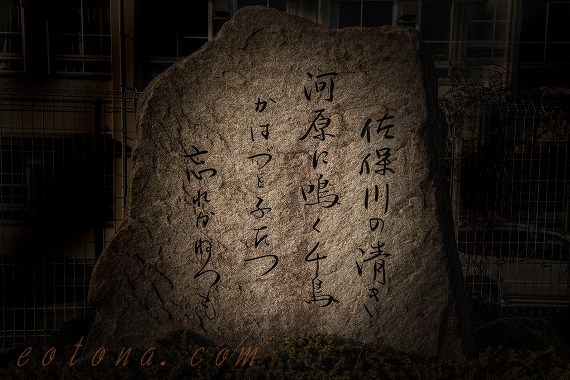 佐保川の清き
河原に鳴く千鳥
かはづと二つ
忘れかねつも
eotona.com